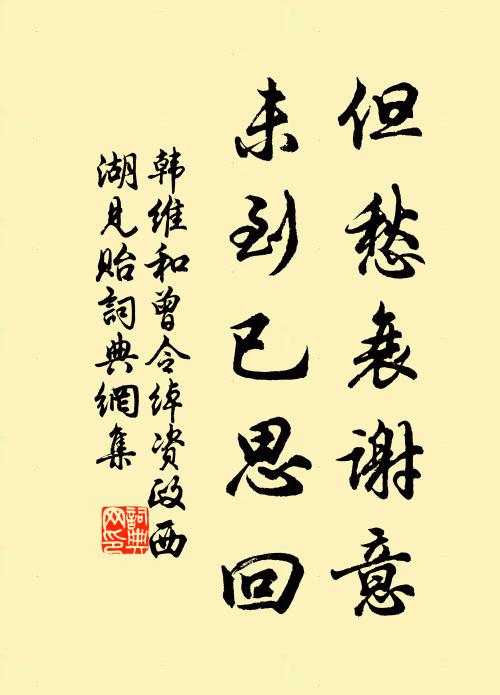 但愁衰谢意
未到已思回
韩维和曾令绰资政西
湖见贻詞典網集
詞典网印